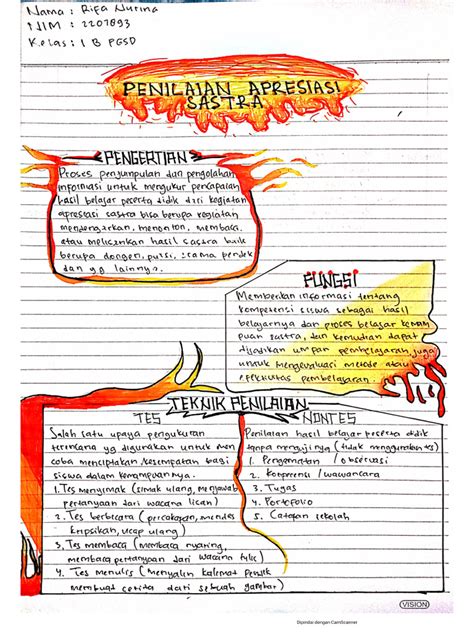 Nama : Rifa Nurina
NIM : 2207893
Kelas : 1 B PGSD
PENILAIAN APRESIASI
SASTRA
PENGERTIAN
Proses pengumpulan dan pengolahan
informasi untuk mengukur pencapaian
hasil belajar peserta didik dari kegiatan
apresiasi sastra bisa berupa kegiatan
mendengarkan, menonton, membaca,
atau melisankan hasil sastra baik
berupa dongen, puisi, drama pendek
dan yg lainnya.
FUNGSI
Memberikan informasi tentang
kompetensi siswa sebagai hasil
belajarnya dan proses belajar kemam
puan sastra, dan kemudian dapat
dijadikan umpan pembelajaran, juga
untuk mengevaluasi metode atau
efektivitas pembelajaran.
TEKNIK PENILAIAN
TES
Salah satu upaya pengukuran
terencana yg digunakan untuk men
coba menciptakan kesempatan bagi
siswa dalam kemampuannya.
1. Tes menyimak (simak ulang, menjawab
pertanyaan dari wacana lisan)
2. Tes berbicara (percakapan, mendes
kripsikan, ucap ulang)
3. Tes membaca (membaca nyaring,
membaca pertanyaan dari wacana tulis)
4. Tes menulis (menyalin kalimat pendek
membuat cerita dari sebuah gambar)
NONTES
Penilaian hasil belajar peserta didik
tanpa mengujinya (tidak menggunakan tes)
1. Pengamatan / observasi
2. / wawancara
3. Tugas
4. Portofolio
5. Catatan sekolah
VISION
Dipindai dengan CamScanner